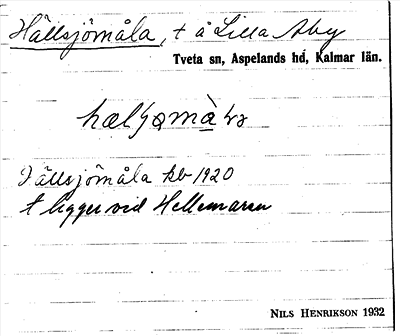 Hällsjömåla, t å Lilla Aby
Tveta sn, Aspelands hd, Kalmar län.
Hällsjömåla kb 1920
t ligger vid Hellemaren
NILS HENRIKSON 1932